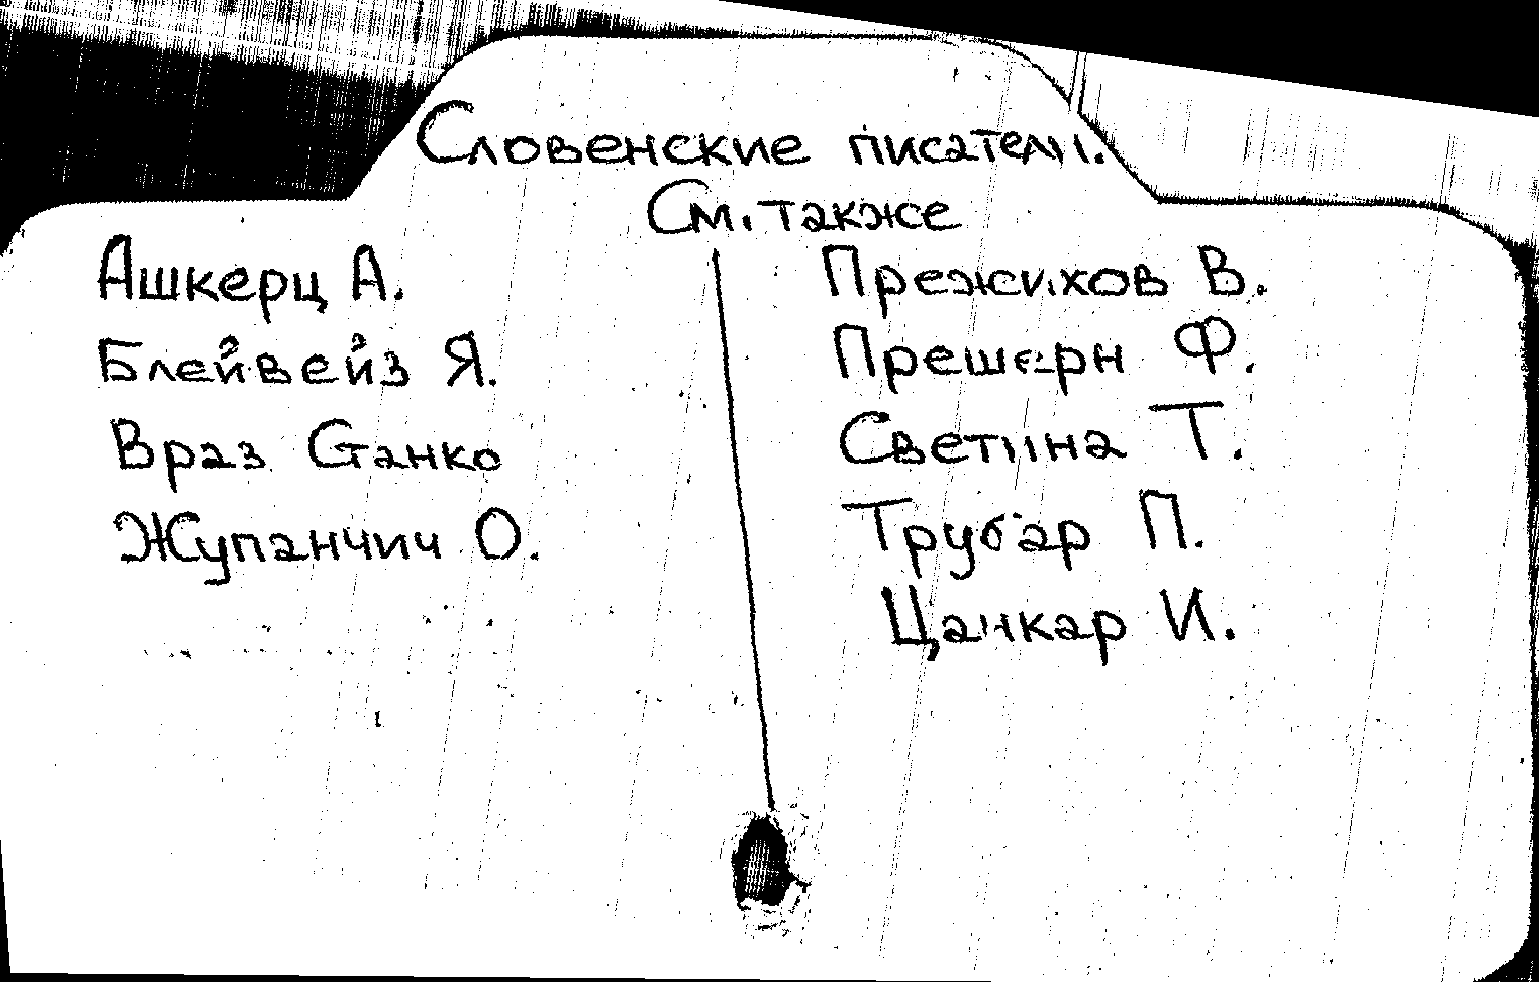 Словенские писатели.
См. также
Ашкерц А.
Блейвейз Я.
Враз Станко
Жупанчич О.
Прежихов В.
Прешерн Ф.
Светина Т.
Трубар П.
Цанкар И.